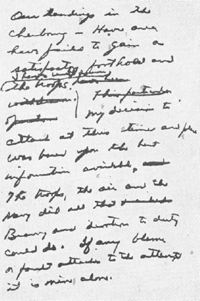 Our landings in the
Cherbourg - Havre area
have failed to gain a
satisfactory foothold and
I have withdrawn
the troops.
This particular
My decision to
attack at this time and place
was based upon the best
information available,
The troops, the air and the
Navy did all that
Bravery and devotion to duty
could do. If any blame
or fault attaches to the attempt
it is mine alone.